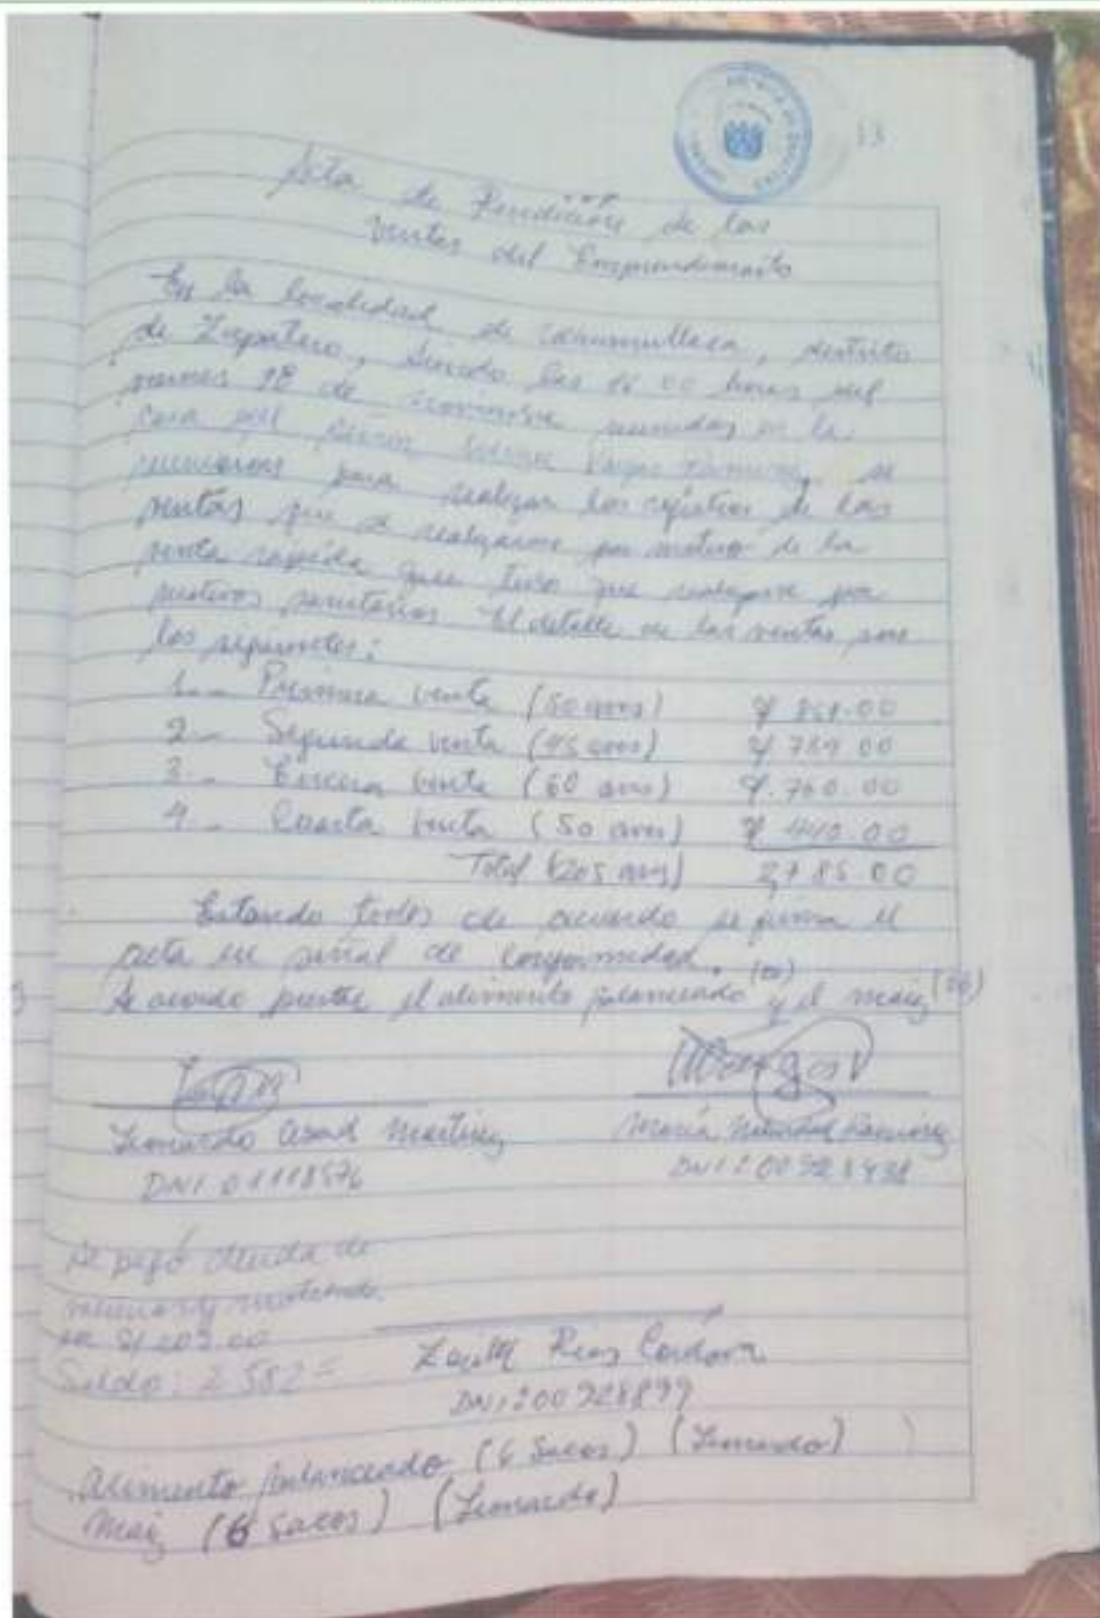 13
Acta de Rendición de las
ventas del Emprendimiento
En la localidad de, distrito
de Zapatero, siendo las 16 00 horas del
18 de noviembre reunidos en la
casa del señor Vargas Ramírez, se
reunieron para realizar los registros de las
ventas que se realizaron por motivo de la
venta rápida que tuvo que realizarse por
motivos sanitarios. El detalle de las ventas son
los siguientes:
1.- Primera venta (50 aves)
2.- Segunda venta (45 aves) S/ 784.00
3.- Tercera venta (60 aves) S/. 760.00
4.- Cuarta venta (50 aves) S/ 440.00
Total (205 aves) 2,785.00
Estando todos de acuerdo se firma el
acta en señal de conformidad.
Se acordo prestar el alimento balanceado y el maiz (06)
Leonardo Martinez María Ramírez
DNI 01118576 DNI: 00928438
Se pagó deuda de
S/ 203.00
Saldo: 2 582 = Rios Cordova
DNI: 00928899
Alimento balanceado (6 Sacos) (Leonardo)
Maiz (6 Sacos) (Leonardo)